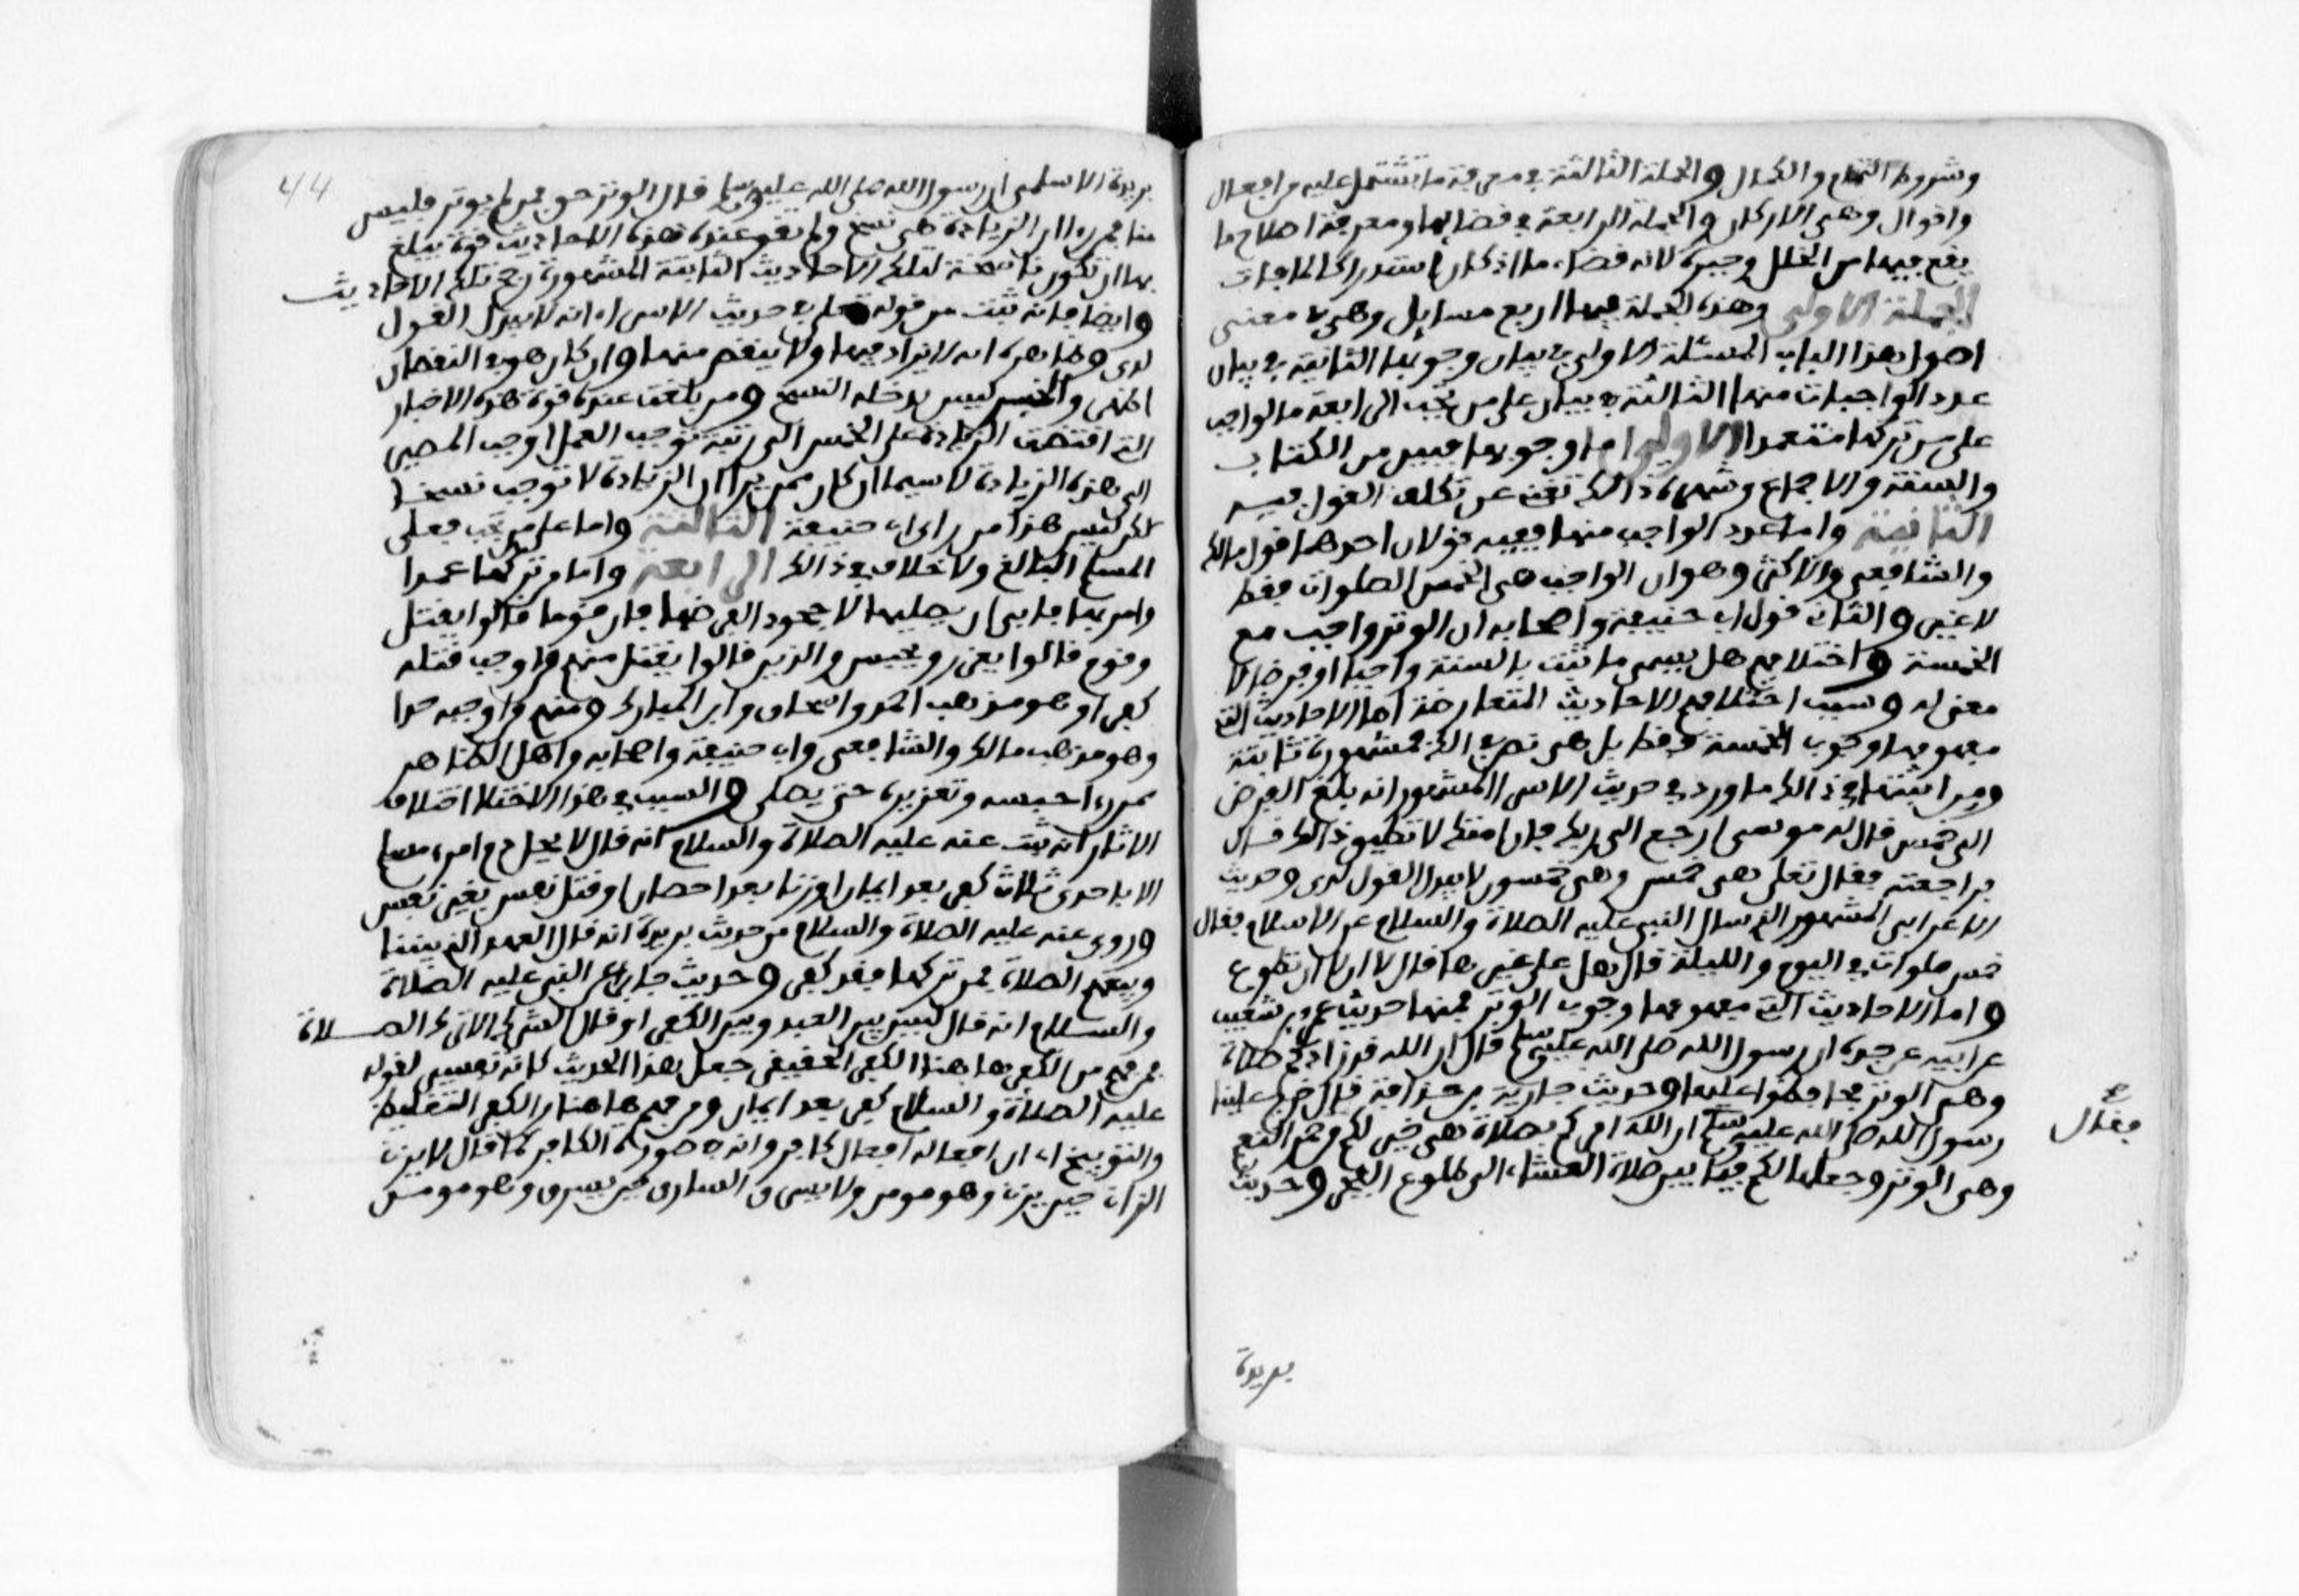 وشروط التمام والكمال والجملة الثالثة في معرفة ما تشتمل عليه من افعال
واقوال وهي الاركان والجملة الرابعة في قضائها ومعرفة اصلاح ما
يقع فيها من الخلل وجبره لانه قضاء ما اذ كان استدراكا لما فات
الجملة الاولى وهذه الجملة فيها اربع مسايل وهي في معنى
اصول هذا الباب المسئلة الاولى في بيان وجوبها الثانية في بيان
عدد الواجبات منها الثالثة في بيان على من تجب الرابعة ما الواجب
على من تركها متعمدا الاولى اما وجوبها فبين من الكتاب
والسنة والاجماع وشهرة ذالك تغني عن تكلف القول فيه
الثانية واما عدد الواجب منها ففيه قولان احدهما قول مالك
والشافعي والاكثر وهو ان الواجب هي الخمس الصلوات فقط
لا غير والثان قول اب حنيفة واصحابه ان الوتر واجب مع
الخمسة واختلافهم هل يسمى ما ثبت بالسنة واجبا او فرضا لا
معنى له وسبب اختلافهم الاحاديث المتعارضة اما الاحاديث التي
مفهومها وجوب الخمسة فقط بل هي نص في ذالك فمشهورة ثابتة
ومن اثبتها في ذالك ما ورد في حديث الاسرا المشهور انه بلغ الفرض
الى خمس قال له موسى ارجع الى ربك فان امتك لا تطيق ذالك قال
فراجعته فقال تعلى هي خمس وهي خمسون لا يبدل القول لدي وحديث
الاعرابي المشهور الذي سال النبي عليه الصلاة والسلام عن الاسلام فقال
خمس صلوات في اليوم والليلة قال هل علي غيرها قال لا الا ان تطوع
واما الاحاديث التي مفهومها وجوب الوتر فمنها حديث عمرو بن شعيب
عن ابيه عن جده ان رسول الله صلى الله عليه وسلم قال ان الله قد زادكم صلاة
وهي الوتر فحافظوا عليها وحديث حارثة بن حذافة قال خرج علينا
رسول الله صلى الله عليه وسلم ان الله امركم بصلاة هي خير لكم من حمر النعم
فقال
وهي الوتر وجعلها لكم فيما بين صلاة العشاء الى طلوع الفجر وحديث
بريدة
44
بريدة الاسلمي ان رسول الله صلى الله عليه وسلم قال الوتر حق فمن لم يوتر فليس
منا فمن راى ان الزيادة هي نسخ ولم تقو عنده هذه الاحاديث قوة تبلغ
بها ان تكون ناسخة لتلك الاحاديث الثابتة المشهورة رجح تلك الاحاديث
وايضا فانه ثبت من قوله تعلى في حديث الاسراء انه لا يبدل القول
لدي وظاهره انه لا يزاد فيها ولا ينقص منها وان كان هو في النقصان
اظهر والخبر ليس يدخله النسخ ومن بلغت عنده قوة هذه الاخبار
التي اقتضت الزيادة على الخمس الى رتبة توجب العمل اوجب المصير
الى هذه الزيادة لا سيما ان كان ممن يرا ان الزيادة لا توجب نسخا
لكن ليس هذا من راي اب حنيفة الثالثة واما على من تجب فعلى
المسلم البالغ ولا خلاف في ذالك الرابعة واما من تركها عمدا
وامر بها فابى ان يصليها لا جحودا لفرضها فان قوما قالوا يقتل
وقوم قالوا يعزر ويحبس والذين قالوا يقتل منهم من اوجب قتله
كفرا وهو مذهب احمد واسحاق وابن المبارك ومنهم من اوجبه حدا
وهو مذهب مالك والشافعي واب حنيفة واصحابه واهل الظاهر
ممن راى حبسه وتعزيره حتى يصلي والسبب في هذا الاختلاف اختلاف
الاثار انه ثبت عنه عليه الصلاة والسلام انه قال لا يحل دم امرء مسلم
الا باحدى ثلاث كفر بعد ايمان او زنا بعد احصان او قتل نفس بغير نفس
وروي عنه عليه الصلاة والسلام من حديث بريدة انه قال العهد الذي بيننا
وبينهم الصلاة فمن تركها فقد كفر وحديث جابر عن النبي عليه الصلاة
والسلام انه قال ليس بين العبد وبين الكفر او قال الشرك الا ترك الصلاة
فمن فهم من الكفر هاهنا الكفر الحقيقي جعل هذا الحديث كانه تفسير لقوله
عليه الصلاة والسلام كفر بعد ايمان ومن فهم هاهنا من الكفر التغليظ
والتوبيخ اي ان افعاله افعال كافر وانه في صورة الكافر كما قال لا يزن
الزان حين يزن وهو مومن ولا يسرق السارق حين يسرق وهو مومن